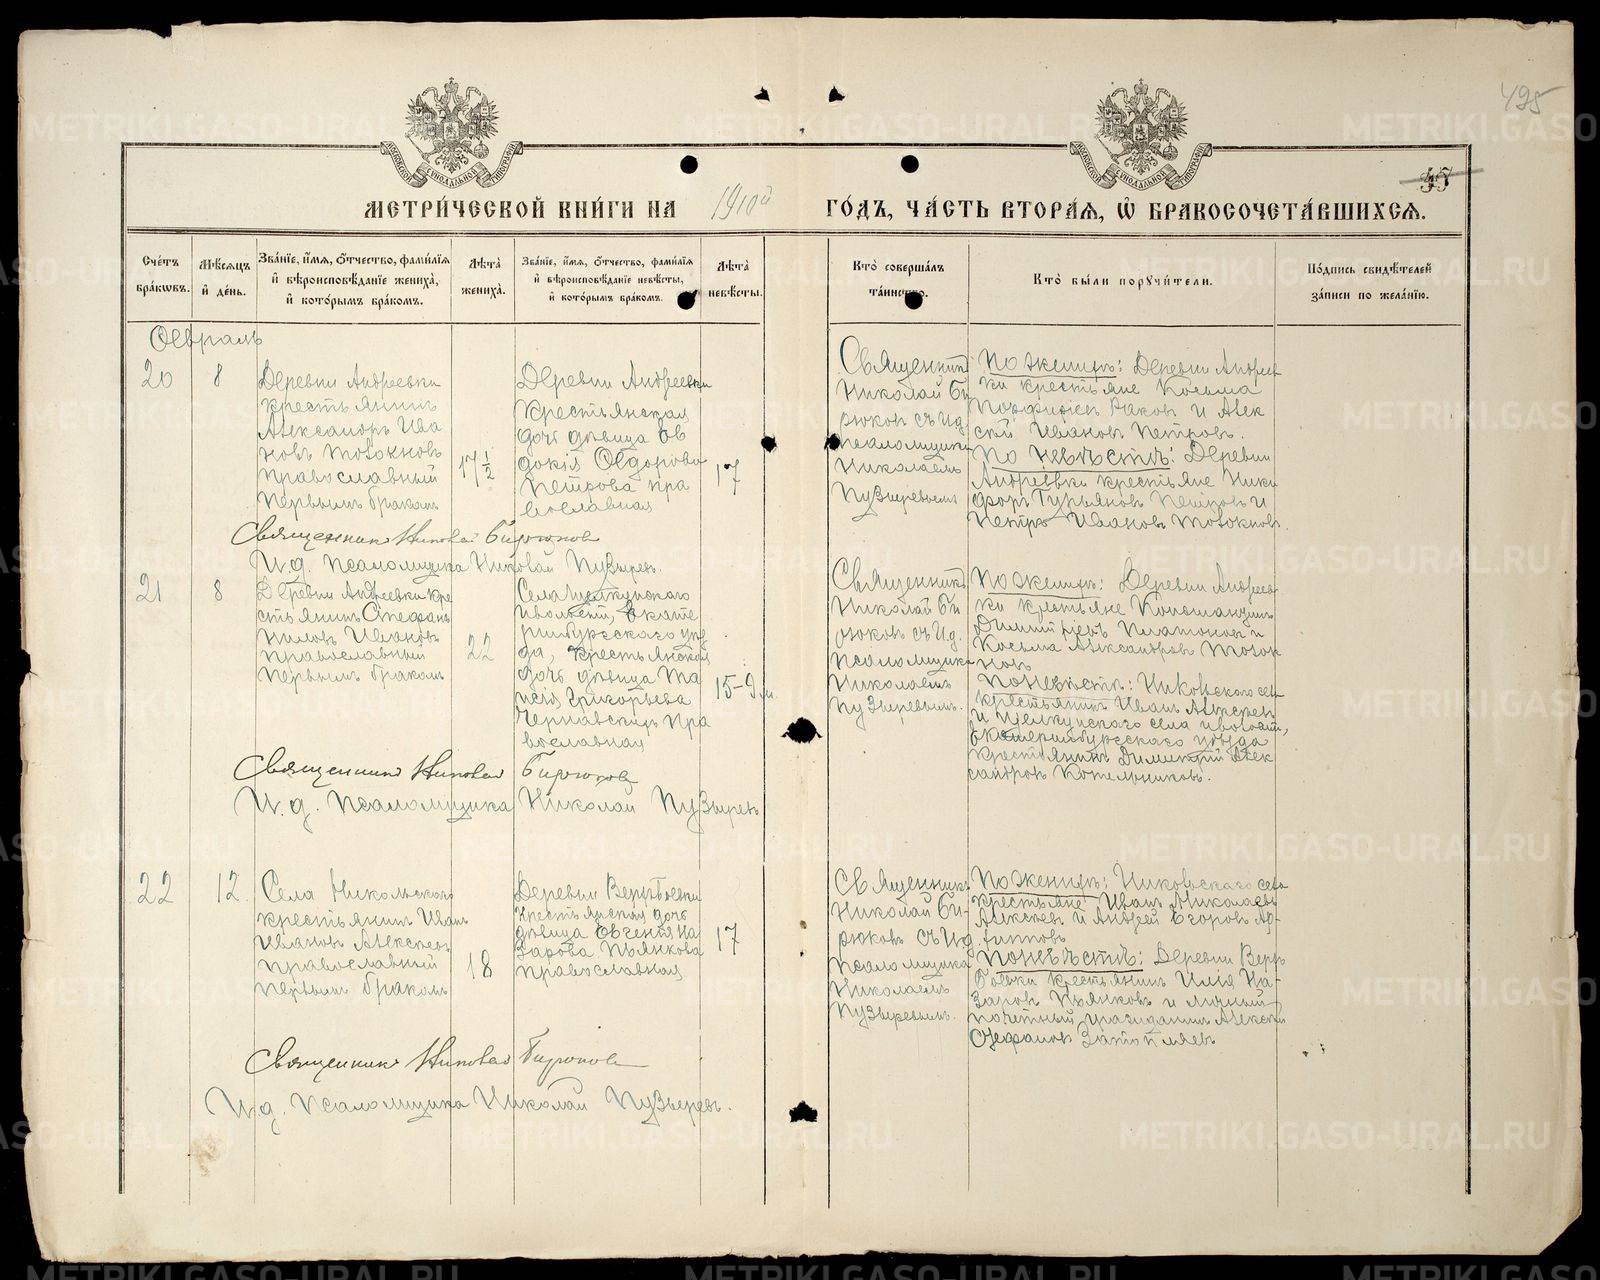 495
45
МЕТРИ́ЧЕСКОЙ КНИ́ГИ НА 1910й ГО́ДЪ, ЧА́СТЬ ВТОРА́Я, Ѡ БРАКОСОЧЕТА́ВШИХСЯ.
Сче́тъ бра́кωвъ.
Мѣ́сяцъ и҆ де́нь.
Зва́нїе, и҆́мя, ѻ҆́тчество, фами́лїя и҆ вѣроисповѣ́данїе жениха̀, и҆ кото́рымъ бра́комъ.
Лѣ́та жениха̀.
Зва́нїе, и҆́мя, ѻ҆́тчество, фами́лїя и҆ вѣроисповѣ́данїе невѣ́сты, и҆ кото́рымъ бра́комъ.
Лѣ́та невѣ́сты.
Кто̀ соверша́лъ та́инство.
Кто̀ бы́ли поручи́тели.
По́дпись свидѣ́телей за́писи по жела́нїю.
Февраль
20
8
Деревни Андреевки
крестьянинъ
Александръ Ива
новъ Мотокновъ
православный
первымъ бракомъ
17 1/2
Деревни Андреевки
крестьянская
дочь дѣвица Ев
докія Ѳедорова
Петрова пра
вославная
17
Священникъ
Николай Би
рюковъ съ И.д.
псаломщика
Николаемъ
Пузыревымъ
По женихѣ: Деревни Андреев
ки крестьяне Косьма
Раковъ и Алек
сѣй Ивановъ Петровъ.
По невѣстѣ: Деревни
Андреевки крестьяне Ники
форъ Гурьяновъ Петровъ и
Петръ Ивановъ Мотокновъ.
Священникъ Николай Бирюковъ
И.д. псаломщика Николай Пузыревъ.
21
8
Деревни Андреевки кре
стьянинъ Стефанъ
Ниловъ Ивановъ
православный
первымъ бракомъ
22
Села Щелкунского
и волости, Екате
ринбургского уѣз
да, крестьянская
дочь дѣвица Та
исія Григорьева
Чернавскихъ пра
вославная
15-9 м.
Священникъ
Николай Би
рюковъ съ И.д.
псаломщика
Николаемъ
Пузыревымъ.
По женихѣ: Деревни Андреев
ки крестьяне Константинъ
Димитріевъ Платоновъ и
Косьма Александровъ Моток
новъ
По невѣстѣ: Никольского села
крестьянинъ Иванъ Алексѣевъ
и Щелкунского села и волости,
Екатеринбургского уѣзда
крестьянинъ Димитрій Алек
сандровъ Котельниковъ.
Священникъ Николай Бирюковъ
И.д. псаломщика Николай Пузыревъ
22
12.
Села Никольского
крестьянинъ Иванъ
Ивановъ Алексѣевъ
православный
первымъ бракомъ
18
Деревни Верхбоевки
крестьянская дочь
дѣвица Евгенія На
зарова Пьянкова
православная
17
Священникъ
Николай Би-
рюковъ съ И.д.
псаломщика
Николаемъ
Пузыревымъ.
По женихѣ: Никольского села
крестьяне Иванъ Николаевъ
Алексѣевъ и Андрей Егоровъ Ар-
хиповъ
По невѣстѣ: Деревни Верх
боевки крестьянинъ Илія На-
заровъ Пьянковъ и личный
почетный гражданинъ Алексѣй
Стефановъ Затопляевъ
Священникъ Николай Бирюковъ
И.д. псаломщика Николай Пузыревъ.
METRIKI.GASO-URAL.RU